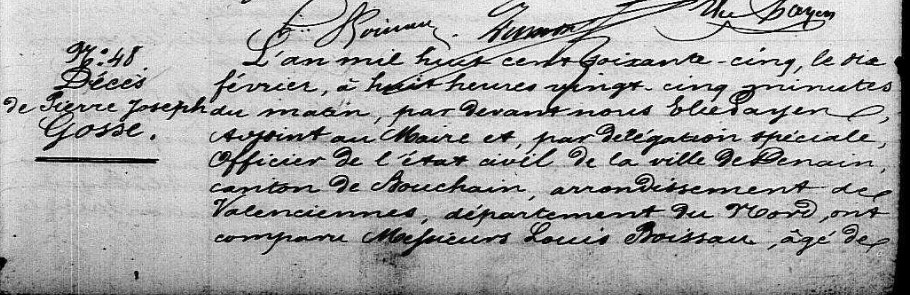 Elie Payen
No. 48
Décès
de Pierre Joseph
Gosse.
L'an mil huit cent soixante-cinq, le dix
février, à huit heures vingt-cinq minutes
du matin, par devant nous Elie Payen,
Adjoint au Maire et, par délégation spéciale,
Officier de l'état civil de la ville de Denain,
canton de Bouchain, arrondissement de
Valenciennes, département du Nord, ont
comparu Messieurs Louis Boissau, âgé de